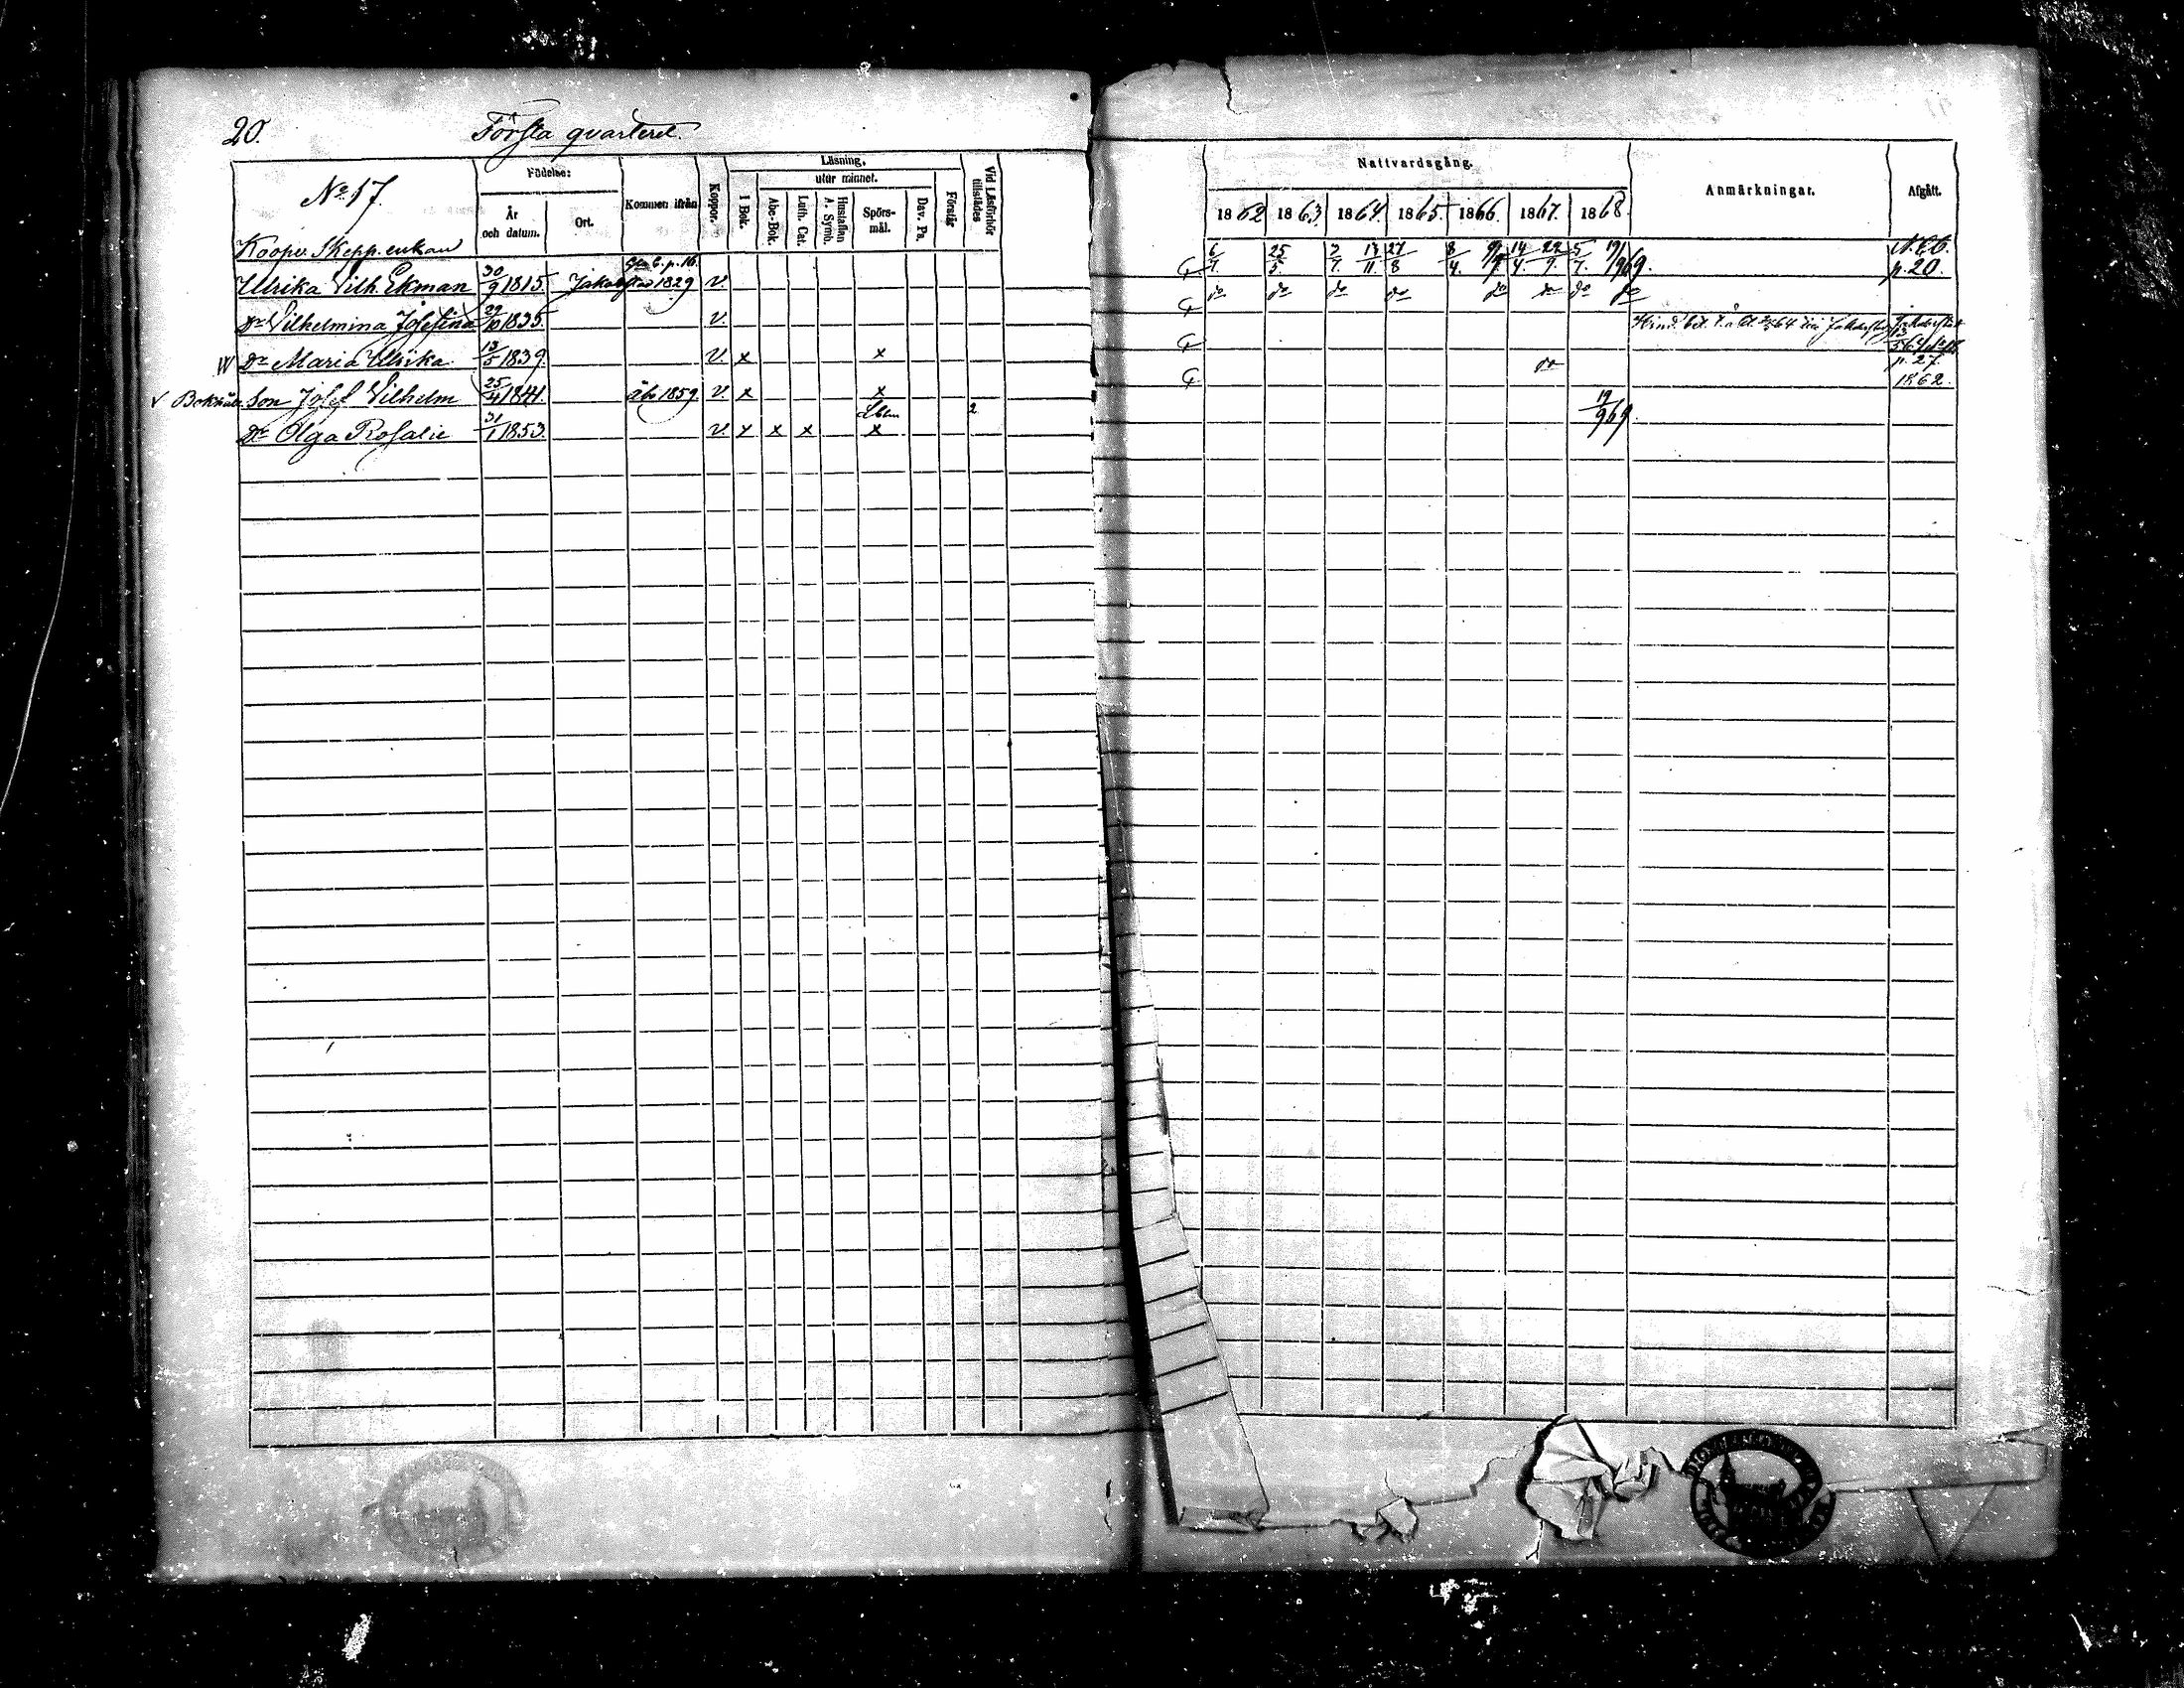 20. Första quarteret.
No 17.
Födelse:
År och datum.
Ort.
Kommen ifrån
Koppor.
Läsning,
utur minnet.
I Bok.
Abc-Bok.
Luth. Cat.
Hustaflan A. Symb.
Spörs-mål.
Dav. Ps.
Förstår
Vid Läsförhör tillstädes
Nattvardsgång.
1862 1863 1864 1865 1866 1867 1868
Anmärkningar.
Afgått.
Koopv. Skepp. enkan
Ulrika Vilh Ekman 30/9 1815. Jakobstad 1829 v. 6/7. 25/5 2/7. 13/11. 27/8 8/4. 14/4. 22/9. 5/7. 19/9 69. N.C.B. p. 20.
Dr Vilhelmina Josefina 29/10 1835. v. do do do do do do do do
Dr Maria Ulrika 13/5 1839. v. x x
p. 27.
✓ Bokhåll. Son Josef Vilhelm 25/4 1841 Åbo 1859 v. x x 1862.
Dr Olga Rosalie 31/1 1853. v. x x x x 2 19/9 69.